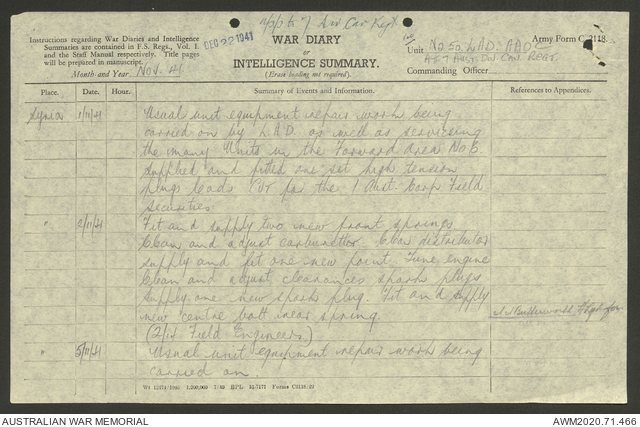 11/3/7 Aust Div Cav Regt
DEC 22 1941
Instructions regarding War Diaries and Intelligence
Summaries are contained in F.S. Regs., Vol. I.
and the Staff Manual respectively. Title pages
will be prepared in manuscript.
Month and Year Nov. 41
WAR DIARY
or
INTELLIGENCE SUMMARY.
(Erase heading not required).
Army Form C 2118.
Unit No 50 L.A.D. A.A.O.C
7 Aust. Div Cav Regt.
Commanding Officer
Place. Date. Hour. Summary of Events and Information. References to Appendices.
Syria 1/11/41 Usual unit equipment repair work being
carried on by L.A.D. as well as servicing
the many Units in the forward area No B.
supplied and fitted one set high tension
plug leads for the 1 Aust. Corp Field
securities
" 2/11/41 Fit and supply two new front springs
Clean and adjust carburettor. Clean distributor
supply and fit one new point. Tune engine
Clean and adjust clearances spark plugs
supply one new spark plug. Fit and supply
new centre bolt rear spring.
Field Engineers)
" 5/11/41 Usual unit equipment repair work being
carried on.
Forms C2118/22
AUSTRALIAN WAR MEMORIAL
AWM2020.71.466